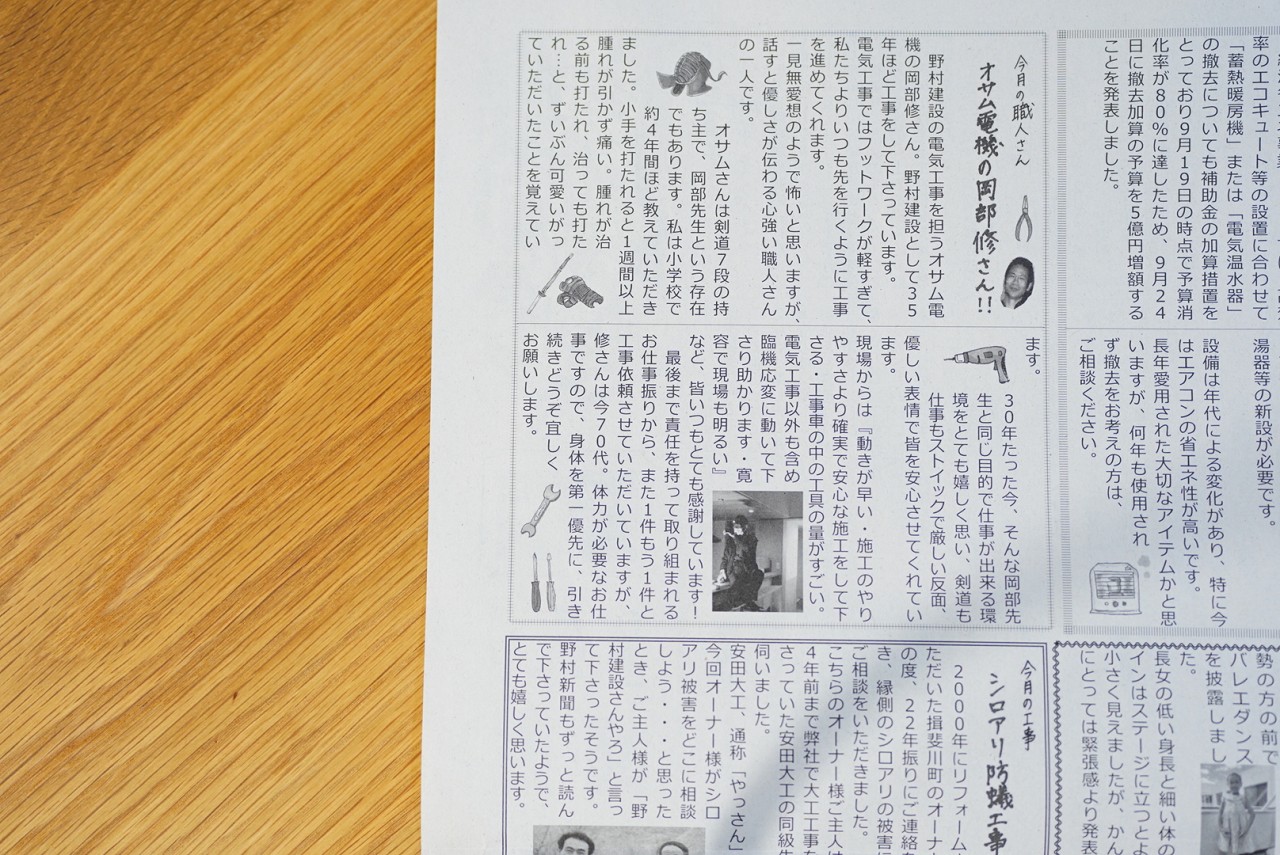 率のエコキュート等の設置に合わせて
「蓄熱暖房機」または「電気温水器」
の撤去についても補助金の加算措置を
とっており9月19日の時点で予算消
化率が80％に達したため、9月24
日に撤去加算の予算を5億円増額する
ことを発表しました。
湯器等の新設が必要です。
設備は年代による変化があり、特に今
はエアコンの省エネ性が高いです。
長年愛用された大切なアイテムかと思
いますが、何年も使用され
ず撤去をお考えの方は、
ご相談ください。
今月の職人さん
オサム電機の岡部修さん!!
野村建設の電気工事を担うオサム電
機の岡部修さん。野村建設として35
年ほど工事をして下さっています。
電気工事ではフットワークが軽すぎて、
私たちよりいつも先を行くように工事
を進めてくれます。
一見無愛想のようで怖いと思いますが、
話すと優しさが伝わる心強い職人さん
の一人です。
オサムさんは剣道7段の持
ち主で、岡部先生という存在
でもあります。私は小学校で
約4年間ほど教えていただき
ました。小手を打たれると1週間以上
腫れが引かず痛い。腫れが治
る前も打たれ、治っても打た
れ…と、ずいぶん可愛いがっ
ていただいたことを覚えてい
ます。
30年たった今、そんな岡部先
生と同じ目的で仕事が出来る環
境をとても嬉しく思い、剣道も
仕事もストイックで厳しい反面、
優しい表情で皆を安心させてくれてい
ます。
現場からは『動きが早い・施工のやり
やすさより確実で安心な施工をして下
さる・工事車の中の工具の量がすごい。
電気工事以外も含め
臨機応変に動いて下
さり助かります・寛
容で現場も明るい』
など、皆いつもとても感謝しています！
最後まで責任を持って取り組まれる
お仕事振りから、また1件もう1件と
工事依頼させていただいていますが、
修さんは今70代。体力が必要なお仕
事ですので、身体を第一優先に、引き
続きどうぞ宜しく
お願いします。
勢の方の前で
バレエダンス
を披露しまし
た。
長女の低い身長と細い体の
インはステージに立つとよ
小さく見えましたが、かん
にとっては緊張感より発表
今月の工事
シロアリ防蟻工事
2000年にリフォーム
ただいた揖斐川町のオーナー
の度、22年振りにご連絡を
き、縁側のシロアリの被害に
ご相談をいただきました。
こちらのオーナー様ご主人は
4年前まで弊社で大工工事を
さっていた安田大工の同級生
伺いました。
安田大工、通称「やっさん」
今回オーナー様がシロ
アリ被害をどこに相談
しよう・・・と思った
とき、ご主人様が「野
村建設さんやろ」と言っ
て下さったそうです。
野村新聞もずっと読ん
で下さっていたようで、
とても嬉しく思います。